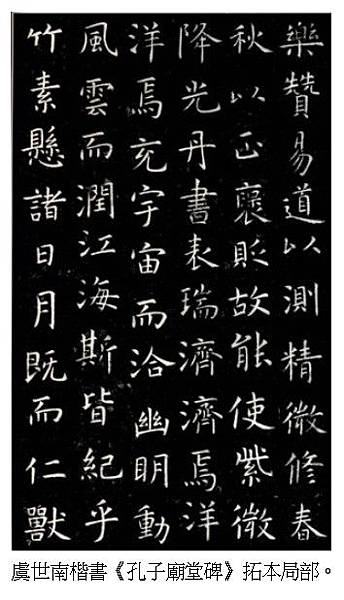 樂贊易道以測精微修春
秋以正襃貶故能使紫微
降光丹書表瑞濟濟焉洋
洋焉充宇宙而洽幽明動
風雲而潤江海斯皆紀乎
竹素懸諸日月既而仁獸
虞世南楷書《孔子廟堂碑》拓本局部。